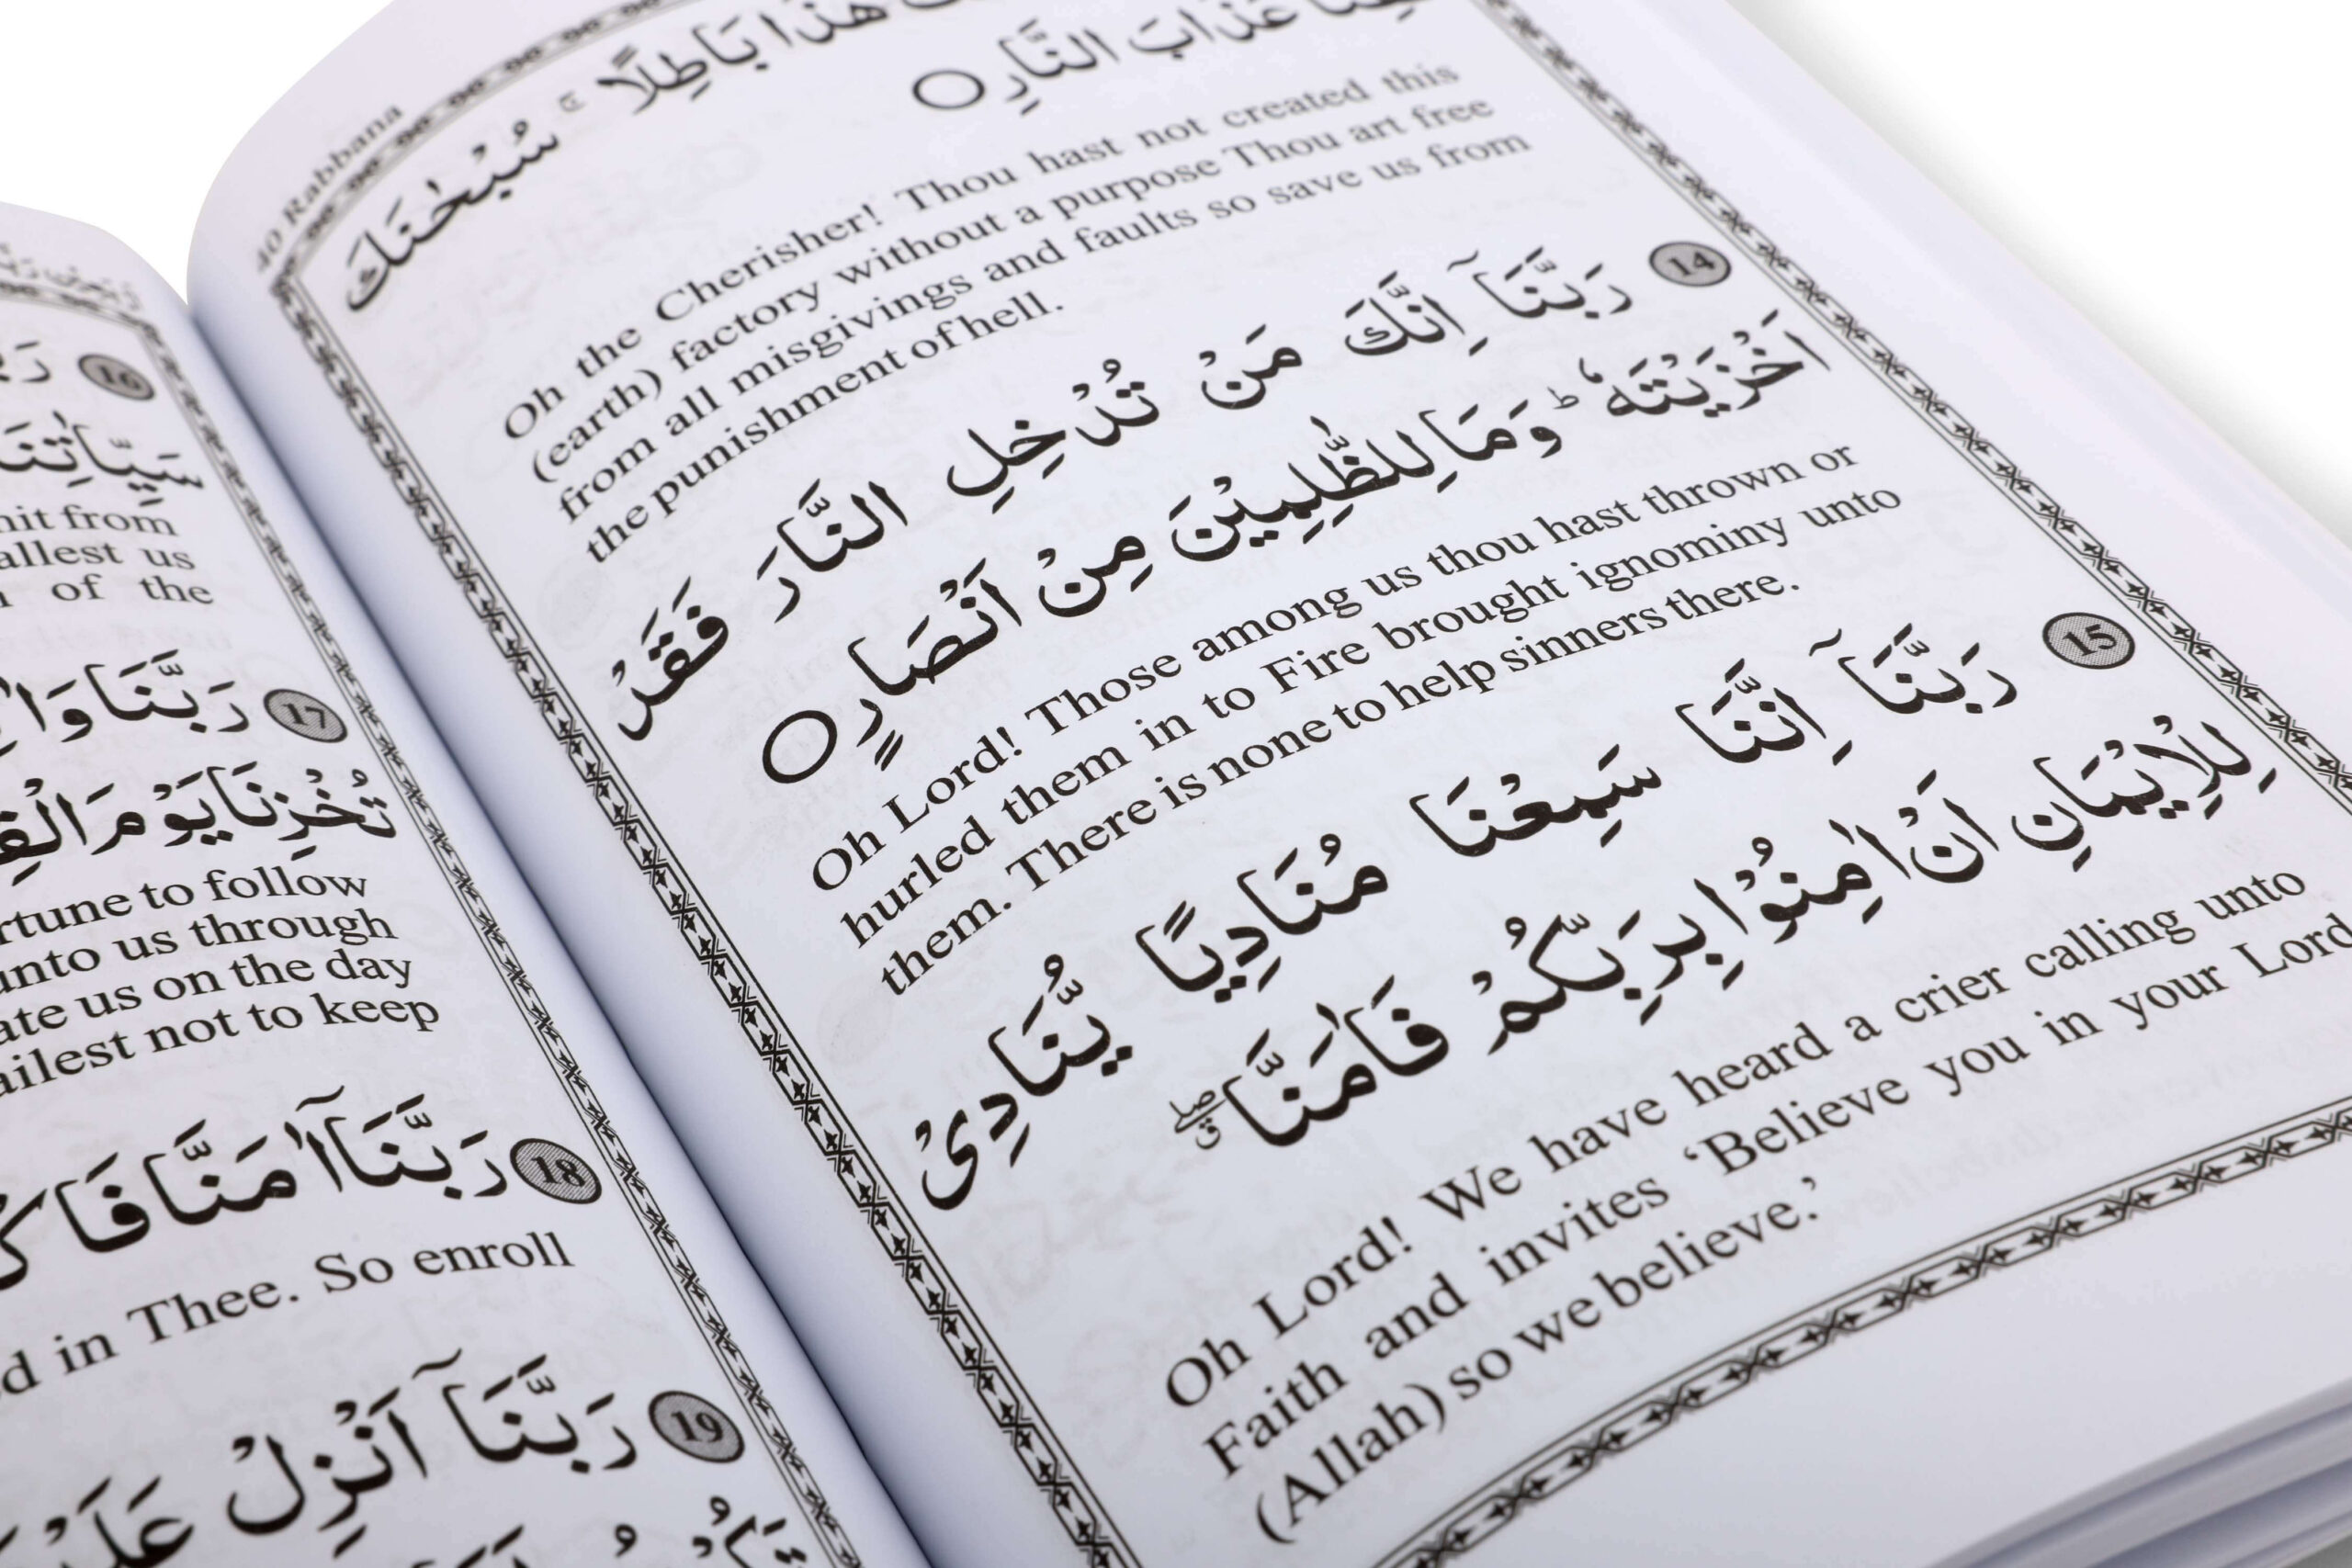 40 Rabbana
هٰذَا بَاطِلًا ۚ سُبْحٰنَكَ
عَذَابَ النَّارِ ○
Oh the Cherisher! Thou hast not created this
(earth) factory without a purpose Thou art free
from all misgivings and faults so save us from
the punishment of hell.
14 رَبَّنَآ اِنَّكَ مَنْ تُدْخِلِ النَّارَ فَقَدْ
اَخْزَيْتَهٗ ؕ وَمَا لِلظّٰلِمِيْنَ مِنْ اَنْصَارٍ ○
Oh Lord! Those among us thou hast thrown or
hurled them in to Fire brought ignominy unto
them. There is none to help sinners there.
15 رَبَّنَآ اِنَّنَا سَمِعْنَا مُنَادِيًا يُّنَادِىْ
لِلْاِيْمَانِ اَنْ اٰمِنُوْا بِرَبِّكُمْ فَاٰمَنَّا ۖق
Oh Lord! We have heard a crier calling unto
Faith and invites ‘Believe you in your Lord
(Allah) so we believe.’
16
سَيِّاٰتِنَا
from
us
of the
17 رَبَّنَا وَاٰ
تُخْزِنَا يَوْمَ الْقِ
to follow
unto us through
us on the day
not to keep
18 رَبَّنَآ اٰمَنَّا فَا
in Thee. So enroll
19 رَبَّنَآ اَنْزِلْ